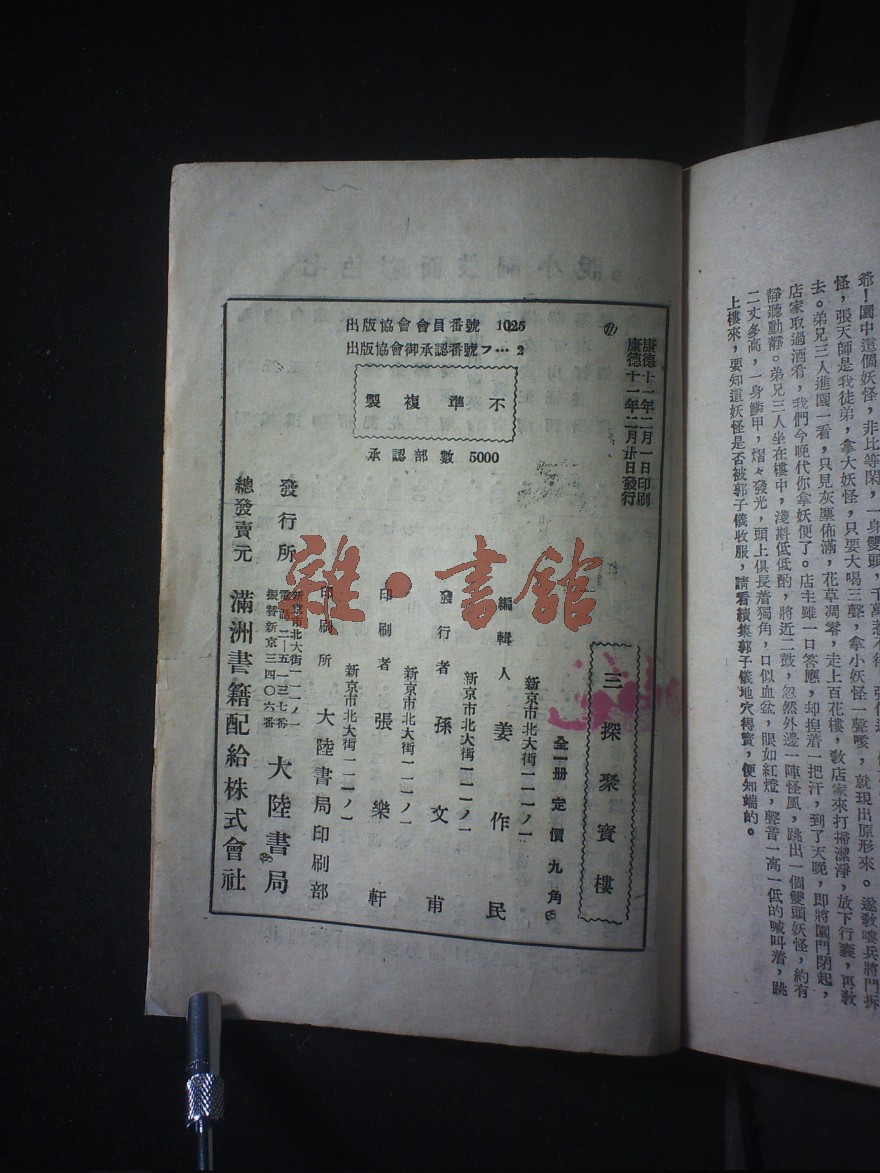 爺！園中這個妖怪，非比等閑，一身雙頭，千萬惹不得
怪，張天師是我徒弟，拿大妖怪，只要大喝三聲，拿小妖怪一聲咳，就現出原形來。遂敎嘍兵將門拆
去。弟兄三人進園一看，只見灰塵佈滿，花草凋零，走上百花樓，敎店家來打掃潔淨，放下行囊，再敎
店家取過酒肴，我們今晚代你拿妖便了。店主雖一口答應，却揑着一把汗，到了天晚，即將園門閉起，
靜聽動靜。弟兄三人坐在樓中，淺斟低低酌，將近二鼓，忽然外邊一陣怪風，跳出一個雙頭妖怪，約有
二丈多高，一身鱗甲，熠々發光，頭上俱長着獨角，口似血盆，眼如紅燈，聲音一高一低的喊叫着，跳
上樓來，要知這妖怪是否被郭子儀收服，請看續集郭子儀地穴得寳，便知端的。
出版協會會員番號 1025
出版協會御承認番號フ… 2
不準複製
承認部數 5000
康德十一年二月一日印刷
康德十一年二月廿日發行
三探聚寳樓
全一册 定價九角
新京市北大街一一一ノ一
編輯人 姜作民
新京市北大街一一一ノ一
發行者 孫文甫
新京市北大街一一一ノ一
印刷者 張樂軒
印刷所 大陸書局印刷部
新京市北大街一一一ノ一
電話二—五一三七番
振替新京三四〇六番
發行所 大陸書局
總發賣元 滿洲書籍配給株式會社
雜·書館